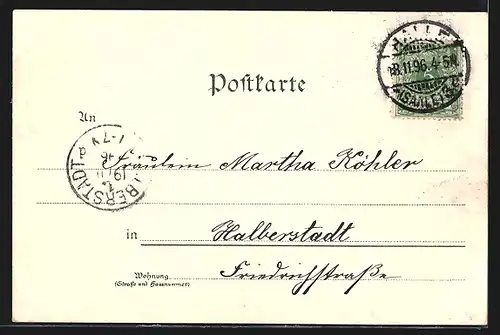 HALLE
18.11.96.4-5N.
(SAALE)
Postkarte
An
Fräulein Martha Köhler
HALBERSTADT
19
in Halberstadt
Friedrichstraße
Wohnung
(Straße und Hausnummer)